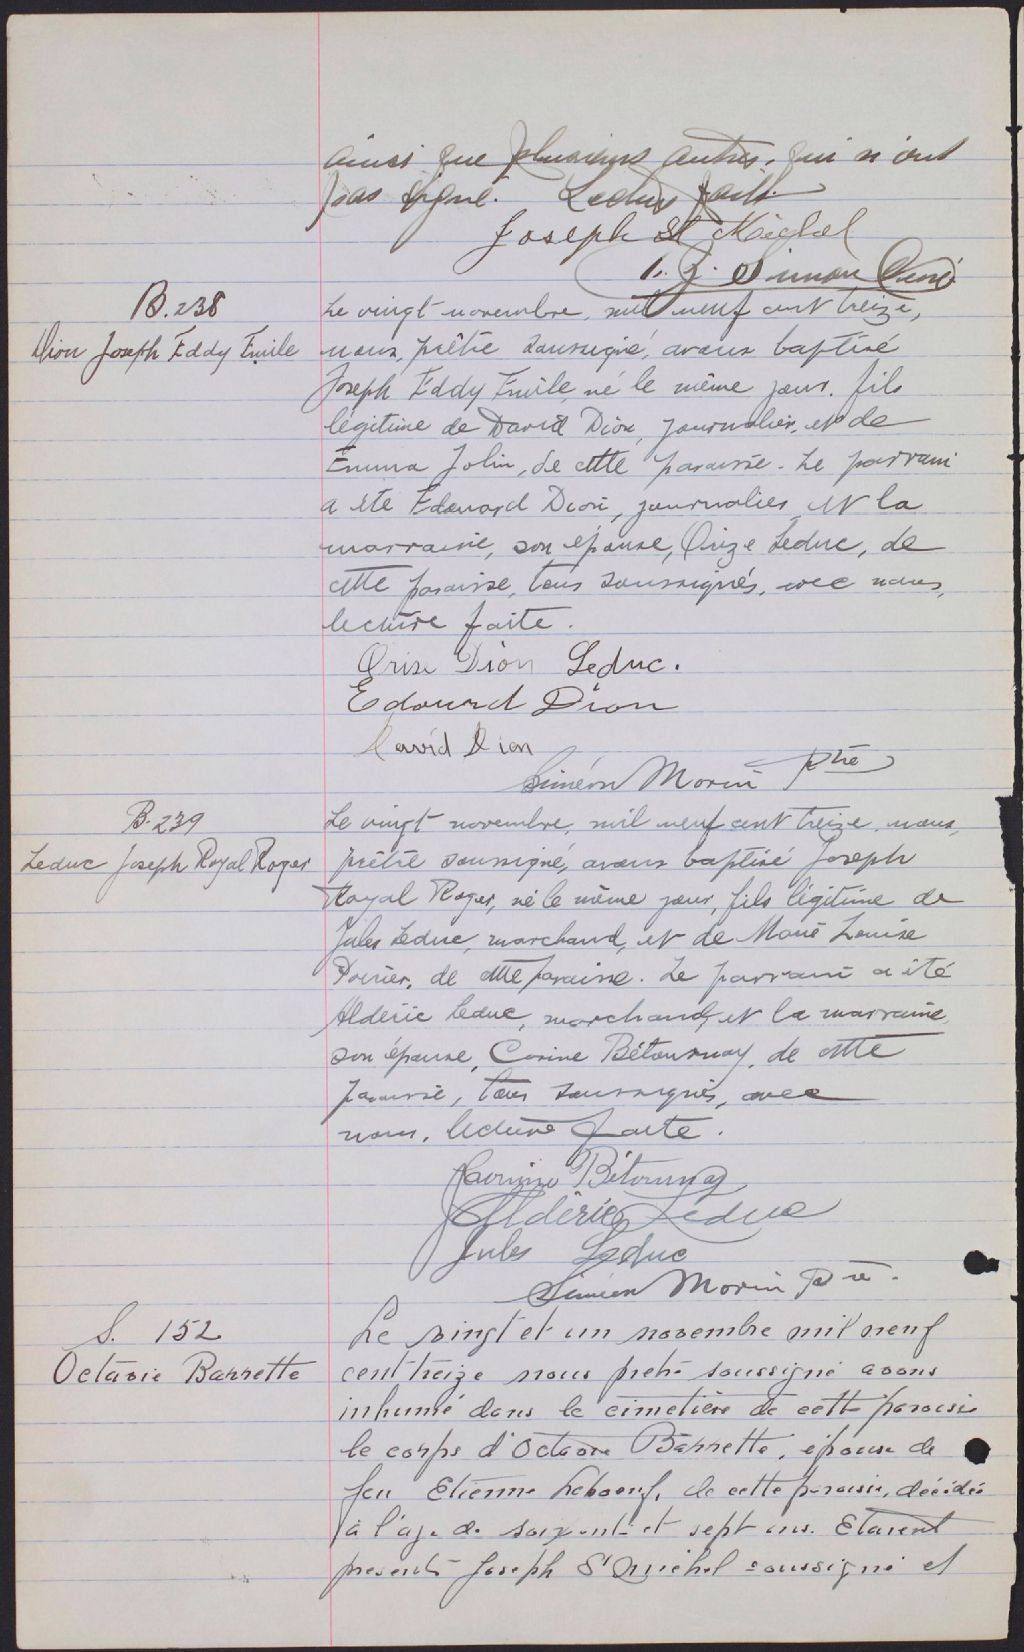 ainsi que plusieurs autres, qui n'ont
pas signé. Lecture faite.
Joseph St Michel
Simon Curé
B. 238
Dion Joseph Eddy Emile
Le vingt novembre, mil neuf cent treize,
nous, prêtre soussigné, avons baptisé
Joseph Eddy Emile, né le même jour, fils
légitime de David Dion, journalier, et de
Emma Jolin, de cette paroisse. Le parrain
a été Edouard Dion, journalier, et la
marraine, son épouse, Orize Leduc, de
cette paroisse, tous soussignés, avec nous,
lecture faite.
Orise Dion Leduc.
Edouard Dion
David Dion
Siméon Morin ptre
B. 239
Leduc Joseph Royal Roger
Le vingt novembre, mil neuf cent treize, nous,
prêtre soussigné, avons baptisé Joseph
Royal Roger, né le même jour, fils légitime de
Jules Leduc, marchand, et de Marie Louise
Poirier, de cette paroisse. Le parrain a été
Aldéric Leduc, marchand, et la marraine,
son épouse, Corine Bétournay, de cette
paroisse, tous soussignés, avec
nous, lecture faite.
Bétournay
Aldéric Leduc
Jules Leduc
Siméon Morin Ptre.
S. 152
Octavie Barrette
Le vingt et un novembre mil neuf
cent treize nous prêtre soussigné avons
inhumé dans le cimetière de cette paroisse
le corps d'Octavie Barrette, épouse de
feu Etienne Leboeuf, de cette paroisse, décédée
à l'age de soixante et sept ans. Etaient
présents Joseph St Michel soussigné et